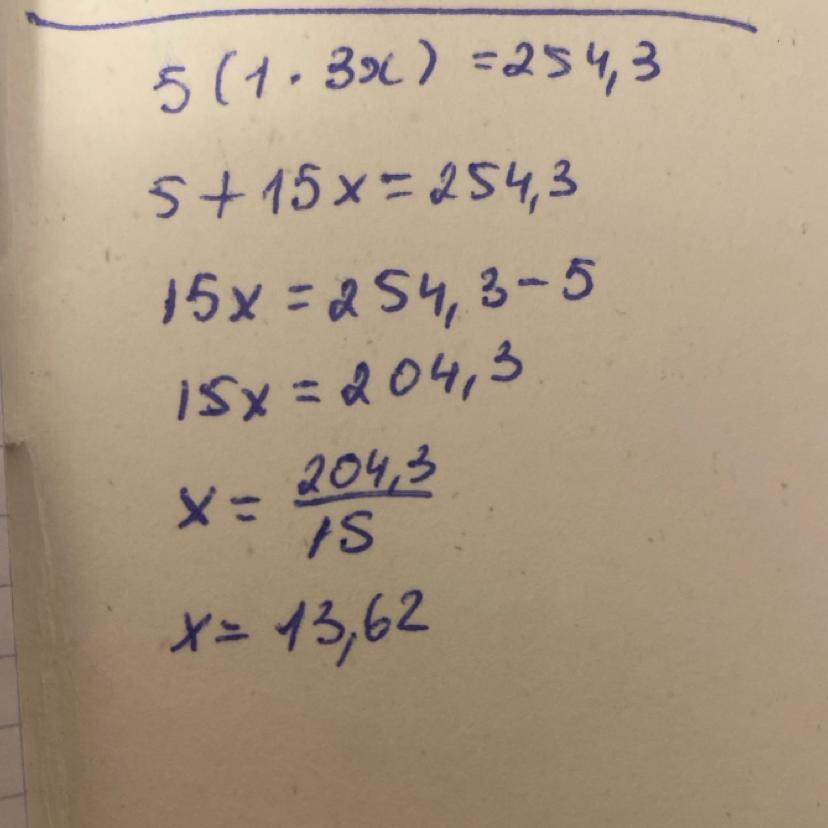 5(1 · 3x) = 254,3
5 + 15x = 254,3
15x = 254,3 - 5
15x = 204,3
x = 204,3/15
x = 13,62